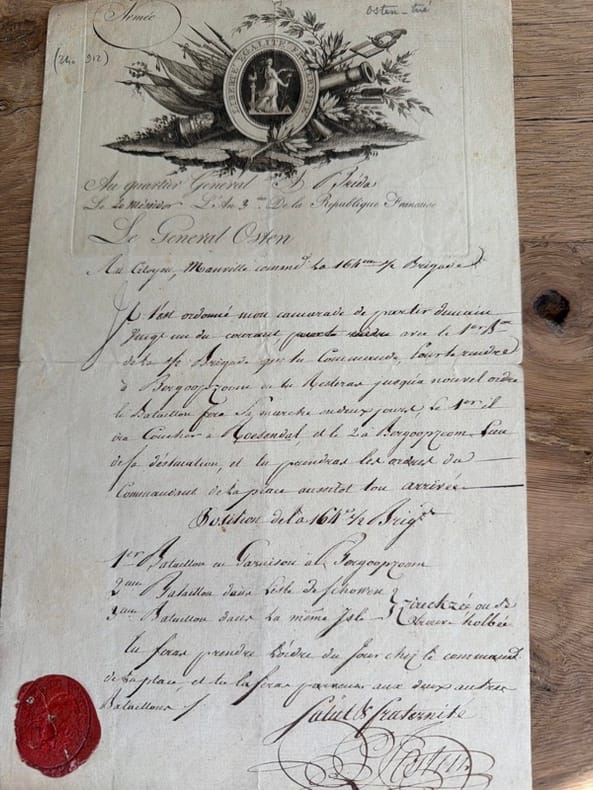 Armée
Osten - tué
(24. 912)
LIBERTÉ EGALITÉ FRATERNITÉ
Au quartier General A Bréda
Le L'An 3.me De la République Francaise
Le General Osten
Au Citoyen, Manville command. la 164eme 1/2 Brigade
Il t'est ordonné mon camarade de partir demain
vingt un du courant avec le 1er B.on
de la 1/2 Brigade que tu Commande, pour te rendre
à Bergoopzoom ou tu Resteras jusqu'a nouvel ordre
le Bataillon fera Sa marche en deux jours, le 1er il
ira Coucher à Rosendal, et le 2 à Bergoopzoom Lieu
de sa déstination, et tu prendras les ordres du
Commandant de la place aussitot ton arrivée
Position de la 164e 1/2 Brig.de
1er Bataillon en Garnison à Bergoopzoom
2eme Bataillon dans L'isle de Schowen
3eme Bataillon dans la même Isle
Zirichzée ou
tu feras prendre L'ordre du Jour chez le command.
de la place, et tu la feras parvenir aux deux autres
Bataillons ./.
Salut & fraternité
Osten